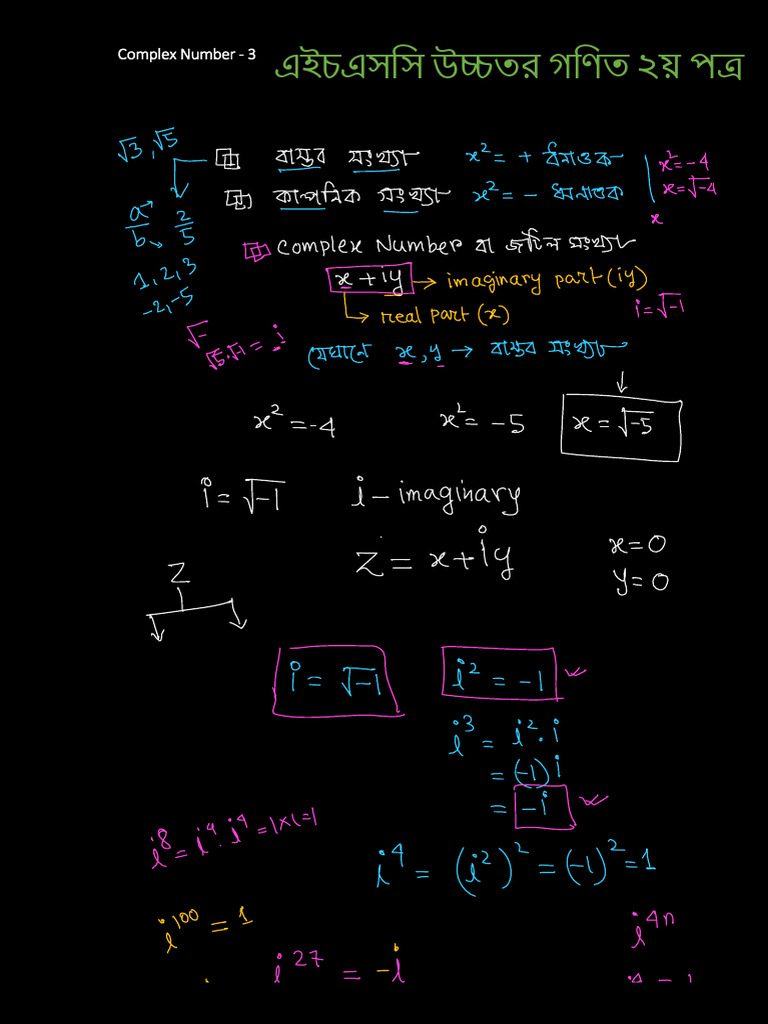 Complex Number - 3
এইচএসসি উচ্চতর গণিত ২য় পত্র
√3, √5
বাস্তব সংখ্যা x² = + ধনাত্মক
x² = -4
কাল্পনিক সংখ্যা x² = -
x = √-4
x
a/b 2/5
Complex Number বা জটিল সংখ্যা
1, 2, 3
-2, -5
x + iy → imaginary part (iy)
→ real part (x)
i = √-1
√-
√5.√-1 = i
যেখানে x, y → বাস্তব সংখ্যা
x² = -4 x² = -5 x = √-5
i = √-1 i - imaginary
Z = x + iy
x = 0
y = 0
Z
i = √-1 i² = -1
i³ = i². i
= (-1) i
= -i
i⁸ = i⁴. i⁴ = 1×1=1
i⁴ = (i²)² = (-1)² = 1
i¹⁰⁰ = 1
i⁴ⁿ
i²⁷ = -i